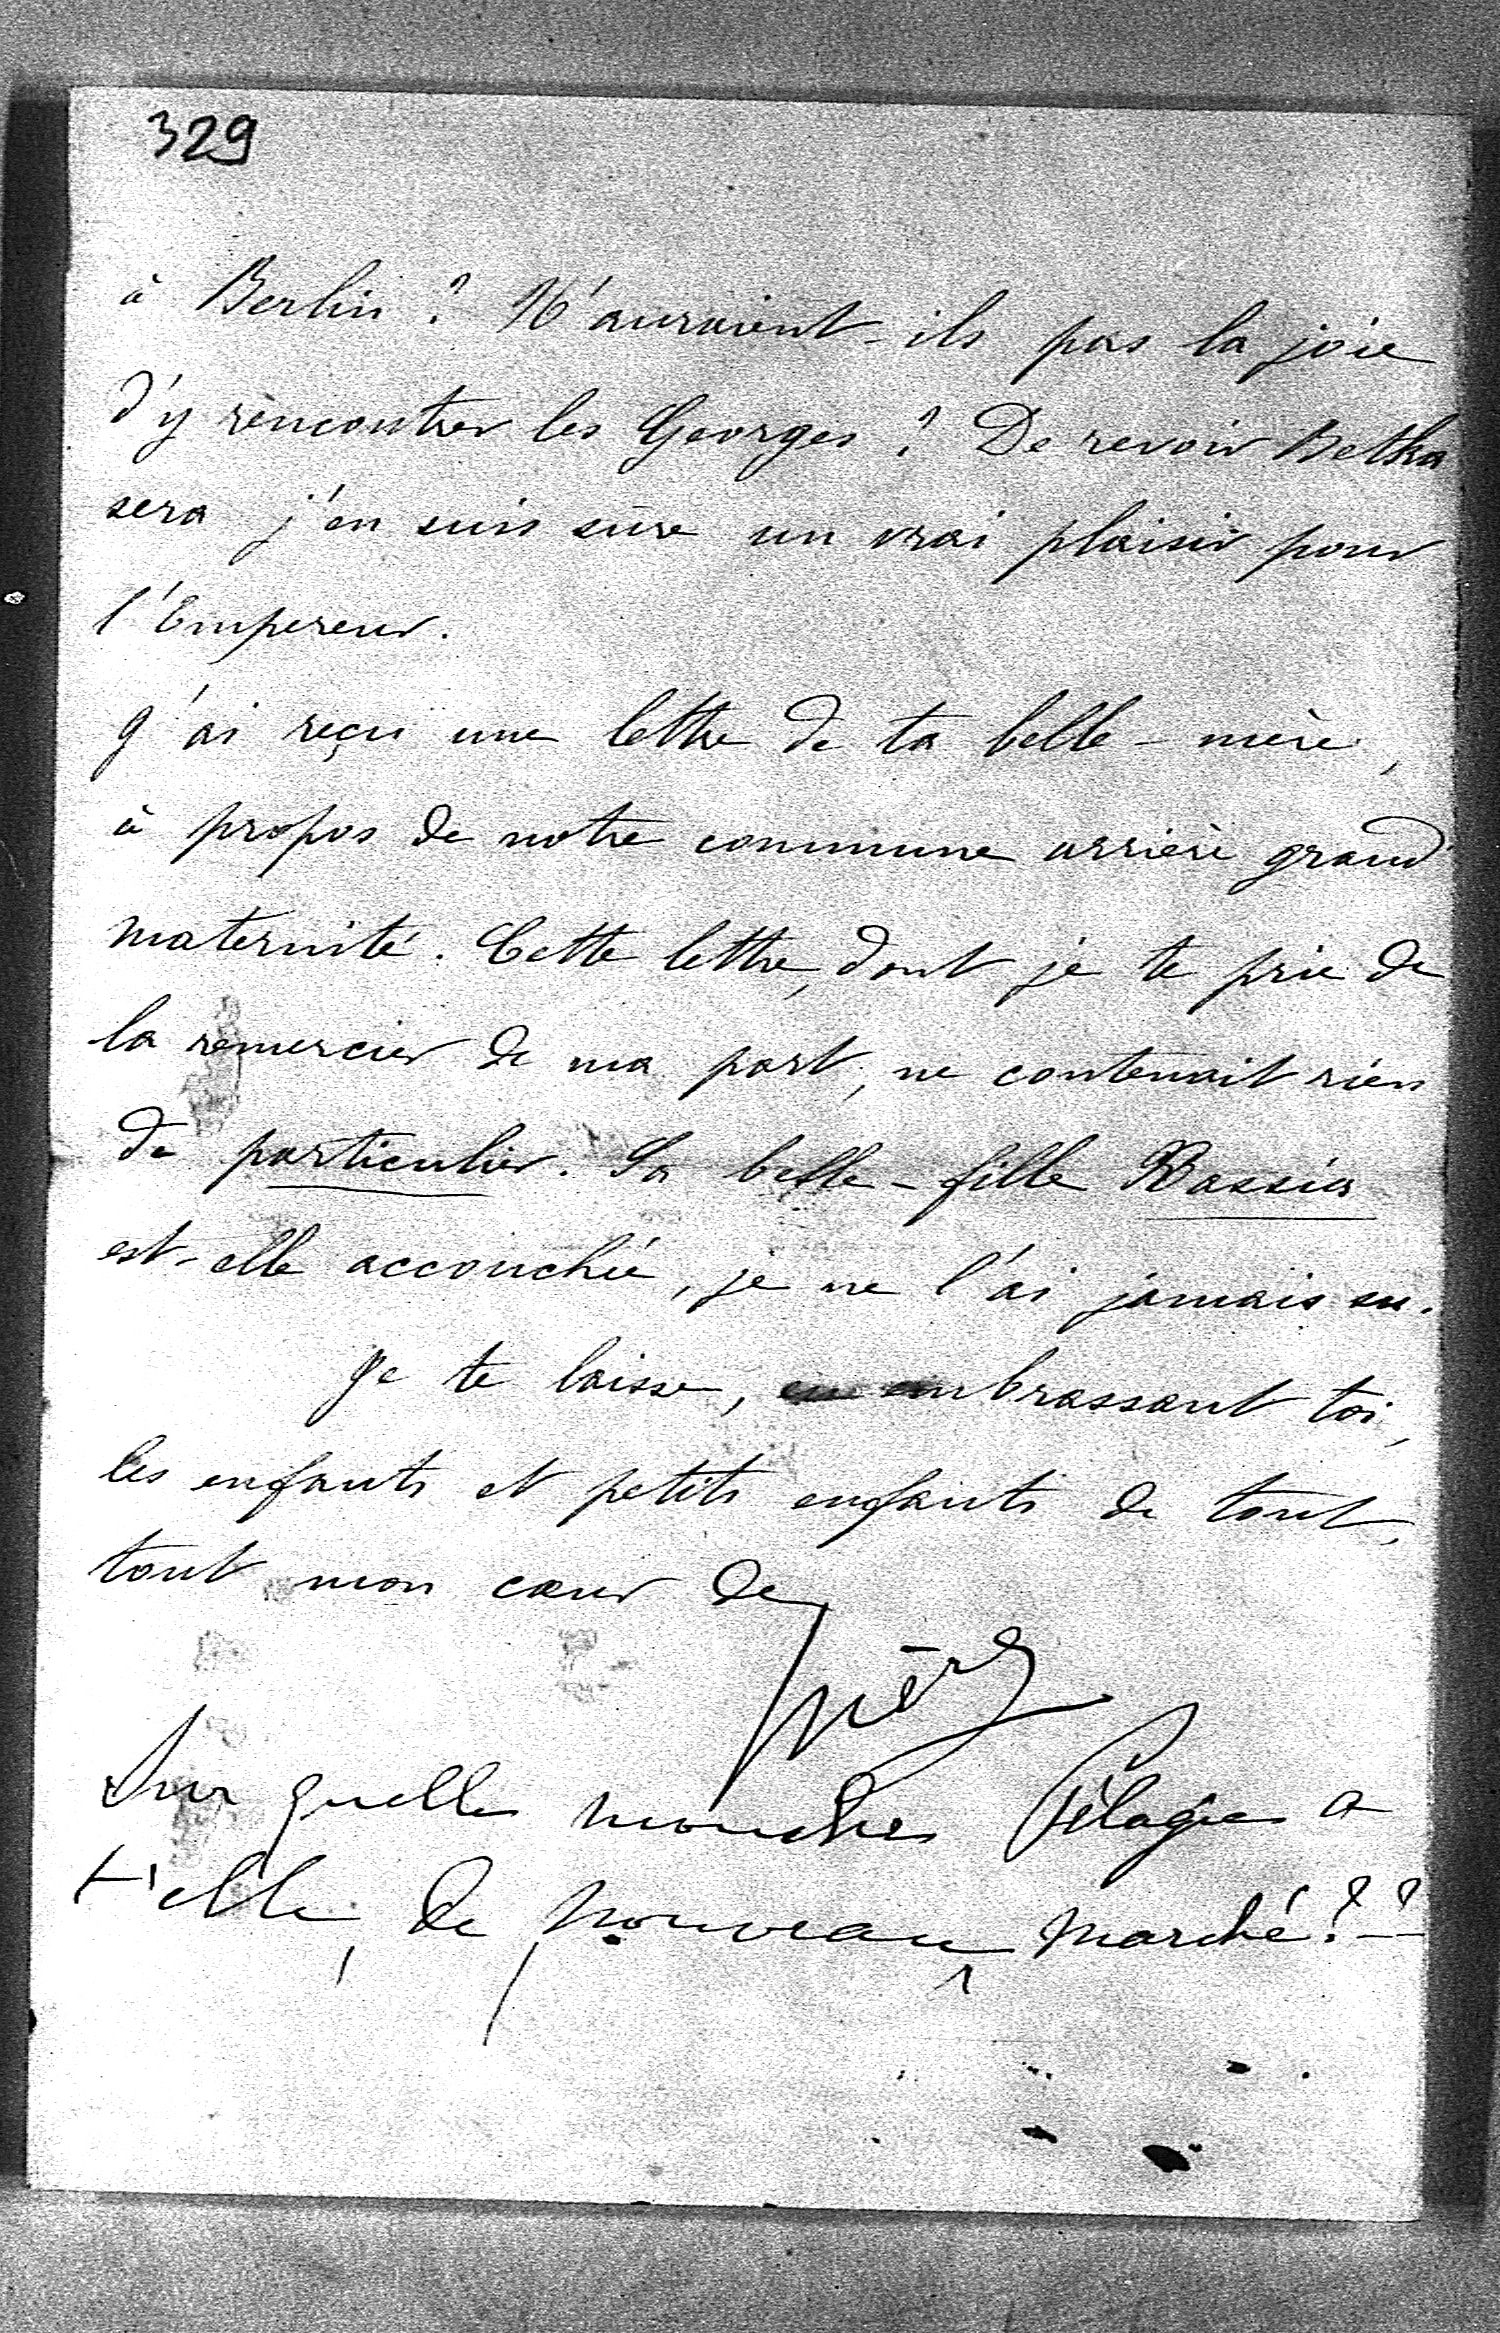 329
à Berlin? N'auraient-ils pas la joie
d'y rencontrer les Georges? De revoir Betka
sera j'en suis sûre un vrai plaisir pour
l'Empereur.
J'ai reçu une lettre de ta belle-mère,
à propos de notre commune arrière grand
maternité. Cette lettre, dont je te prie de
la remercier de ma part, ne contenait rien
de particulier. Sa belle-fille
est-elle accouchée, je ne l'ai jamais su.
Je te laisse, en embrassant toi,
les enfants et petits enfants de tout,
tout mon cœur de
mère
Sur quelles mouches Pélagie a
t'elle, de nouveau, marché??